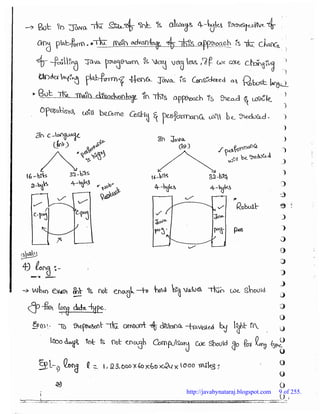 → But in Java The Size of int is always 4-bytes irrespective of
any platform. • The main advantage of this approach is the chance
of failing Java program is very very less, if we are changing
underlaying platforms & Hence Java is Considered as Robust
• But The main disadvantage in This approach is Read & write
operations will become Costly & performance will be reduced.
In c-language
In Java
(int)
• performance is high
(int)
performance will be reduced
16-bits
32-bits
16-bits
32-bits
2-bytes
4-bytes
• Not Robust
4-bytes
4-bytes
Robust
c-prg
c-prg
Java prg.
Java prg
4) long :-
→ when ever int is not enough to hold big values Then we should
go for long data type.
Ex①:- To represent The amount of distance travelled by light in
1000 days int is not enough Compulsory we should go for long type.
Ex1:- long l = 1,23,000x60x60x24x1000 miles;
http://javabynataraj.blogspot.com 9 of 255.